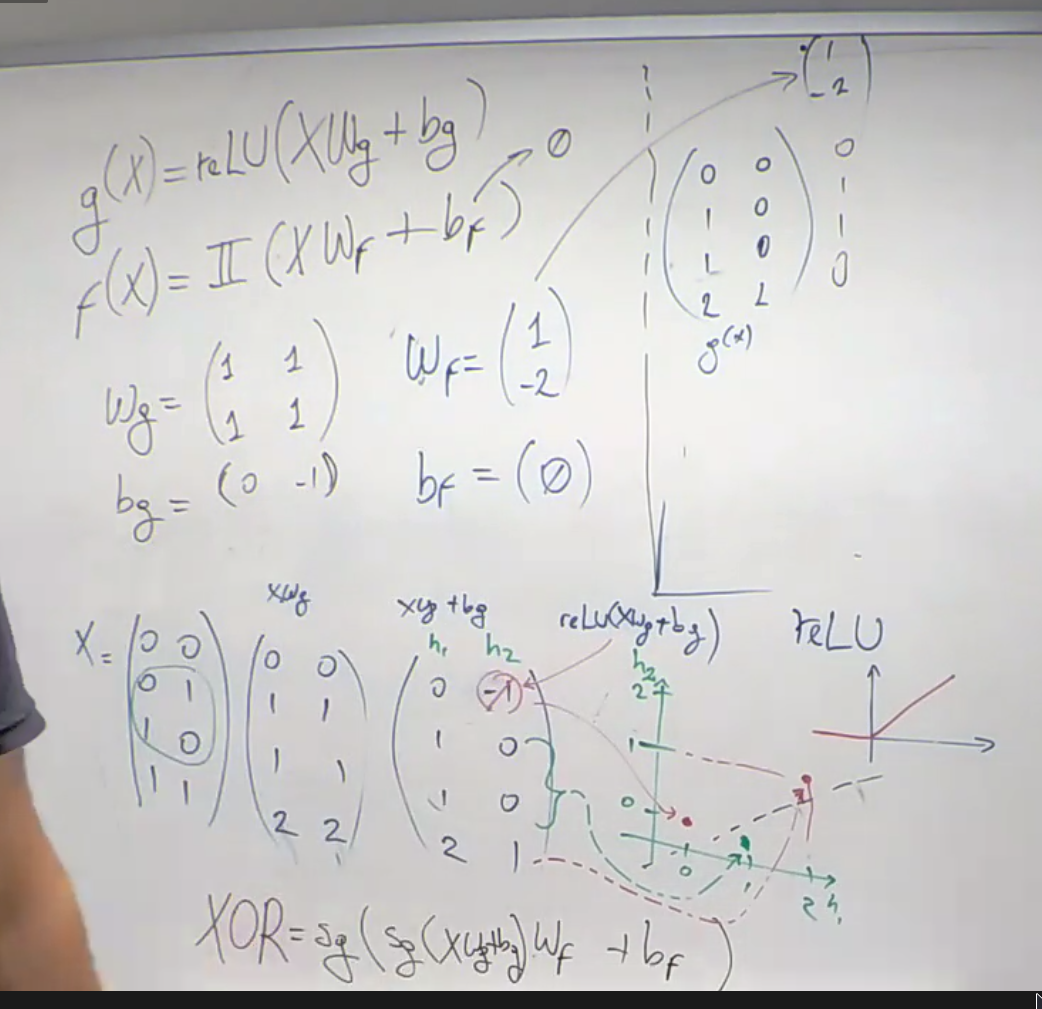 g(X) = reLU(XWg + bg)
f(X) = II (XWf + bf) → ∅
Wg = (1 1
1 1)
Wf = (1
-2)
bg = (0 -1)
bf = (∅)
(1
-2)
(0 0
1 0
1 0
2 1)
g(x)
0
1
1
0
X = (0 0
0 1
1 0
1 1)
XWg
(0 0
1 1
1 1
2 2)
XWg + bg
h1 h2
(0 -1
1 0
1 0
2 1)
reLU(XWg + bg)
h2
2
1
0
0 1 2 h1
reLU
XOR = sg(sg(XWg+bg)Wf + bf)